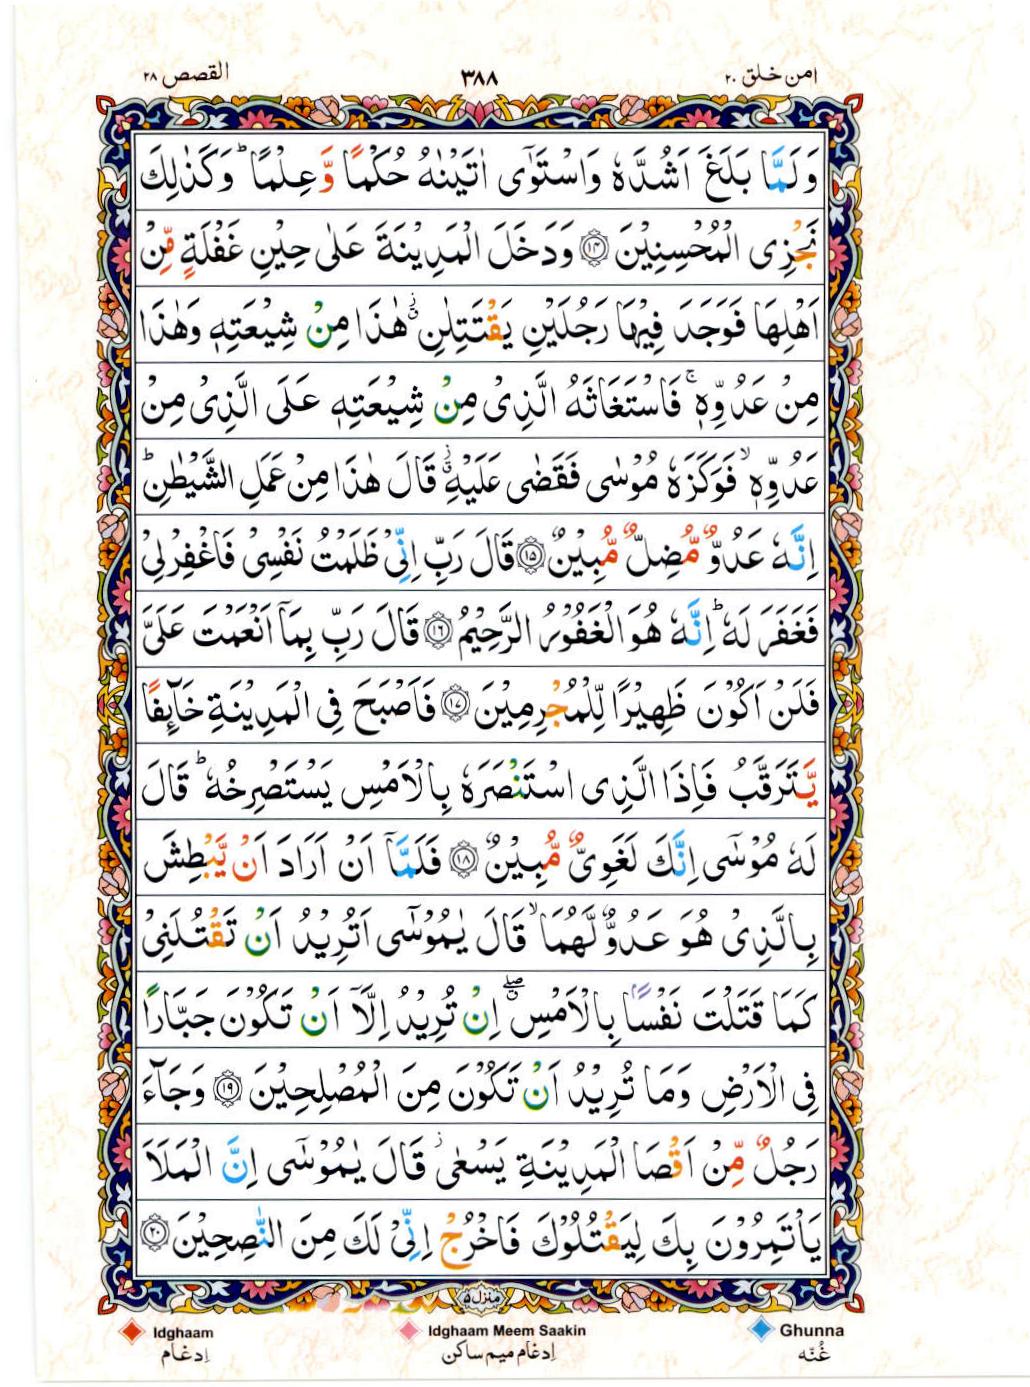 امن خلق ۲۰
۳۸۸
القصص ۲۸
وَلَمَّا بَلَغَ اَشُدَّهٗ وَاسْتَوٰۤى اٰتَيْنٰهُ حُكْمًا وَّعِلْمًا ؕ وَكَذٰلِكَ
نَجْزِى الْمُحْسِنِيْنَ ۝۱۴ وَدَخَلَ الْمَدِيْنَةَ عَلٰى حِيْنِ غَفْلَةٍ مِّنْ
اَهْلِهَا فَوَجَدَ فِيْهَا رَجُلَيْنِ يَقْتَتِلٰنِ ؗ هٰذَا مِنْ شِيْعَتِهٖ وَهٰذَا
مِنْ عَدُوِّهٖ ۚ فَاسْتَغَاثَهُ الَّذِىْ مِنْ شِيْعَتِهٖ عَلَى الَّذِىْ مِنْ
عَدُوِّهٖ ۙ فَوَكَزَهٗ مُوْسٰى فَقَضٰى عَلَيْهِ ؗ قَالَ هٰذَا مِنْ عَمَلِ الشَّيْطٰنِ ؕ
اِنَّهٗ عَدُوٌّ مُّضِلٌّ مُّبِيْنٌ ۝۱۵ قَالَ رَبِّ اِنِّىْ ظَلَمْتُ نَفْسِىْ فَاغْفِرْ لِىْ
فَغَفَرَ لَهٗ ؕ اِنَّهٗ هُوَ الْغَفُوْرُ الرَّحِيْمُ ۝۱۶ قَالَ رَبِّ بِمَاۤ اَنْعَمْتَ عَلَىَّ
فَلَنْ اَكُوْنَ ظَهِيْرًا لِّلْمُجْرِمِيْنَ ۝۱۷ فَاَصْبَحَ فِى الْمَدِيْنَةِ خَآئِفًا
يَّتَرَقَّبُ فَاِذَا الَّذِى اسْتَنْصَرَهٗ بِالْاَمْسِ يَسْتَصْرِخُهٗ ؕ قَالَ
لَهٗ مُوْسٰۤى اِنَّكَ لَغَوِىٌّ مُّبِيْنٌ ۝۱۸ فَلَمَّاۤ اَنْ اَرَادَ اَنْ يَّبْطِشَ
بِالَّذِىْ هُوَ عَدُوٌّ لَّهُمَا ۙ قَالَ يٰمُوْسٰۤى اَتُرِيْدُ اَنْ تَقْتُلَنِىْ
كَمَا قَتَلْتَ نَفْسًاۢ بِالْاَمْسِ ۖ اِنْ تُرِيْدُ اِلَّاۤ اَنْ تَكُوْنَ جَبَّارًا
فِى الْاَرْضِ وَمَا تُرِيْدُ اَنْ تَكُوْنَ مِنَ الْمُصْلِحِيْنَ ۝۱۹ وَجَآءَ
رَجُلٌ مِّنْ اَقْصَا الْمَدِيْنَةِ يَسْعٰى ؗ قَالَ يٰمُوْسٰۤى اِنَّ الْمَلَاَ
يَاْتَمِرُوْنَ بِكَ لِيَقْتُلُوْكَ فَاخْرُجْ اِنِّىْ لَكَ مِنَ النّٰصِحِيْنَ ۝۲۰
منزل ۵
Idghaam Idghaam Meem Saakin Ghunna
اِدغام اِدغام میم ساکن غُنّه